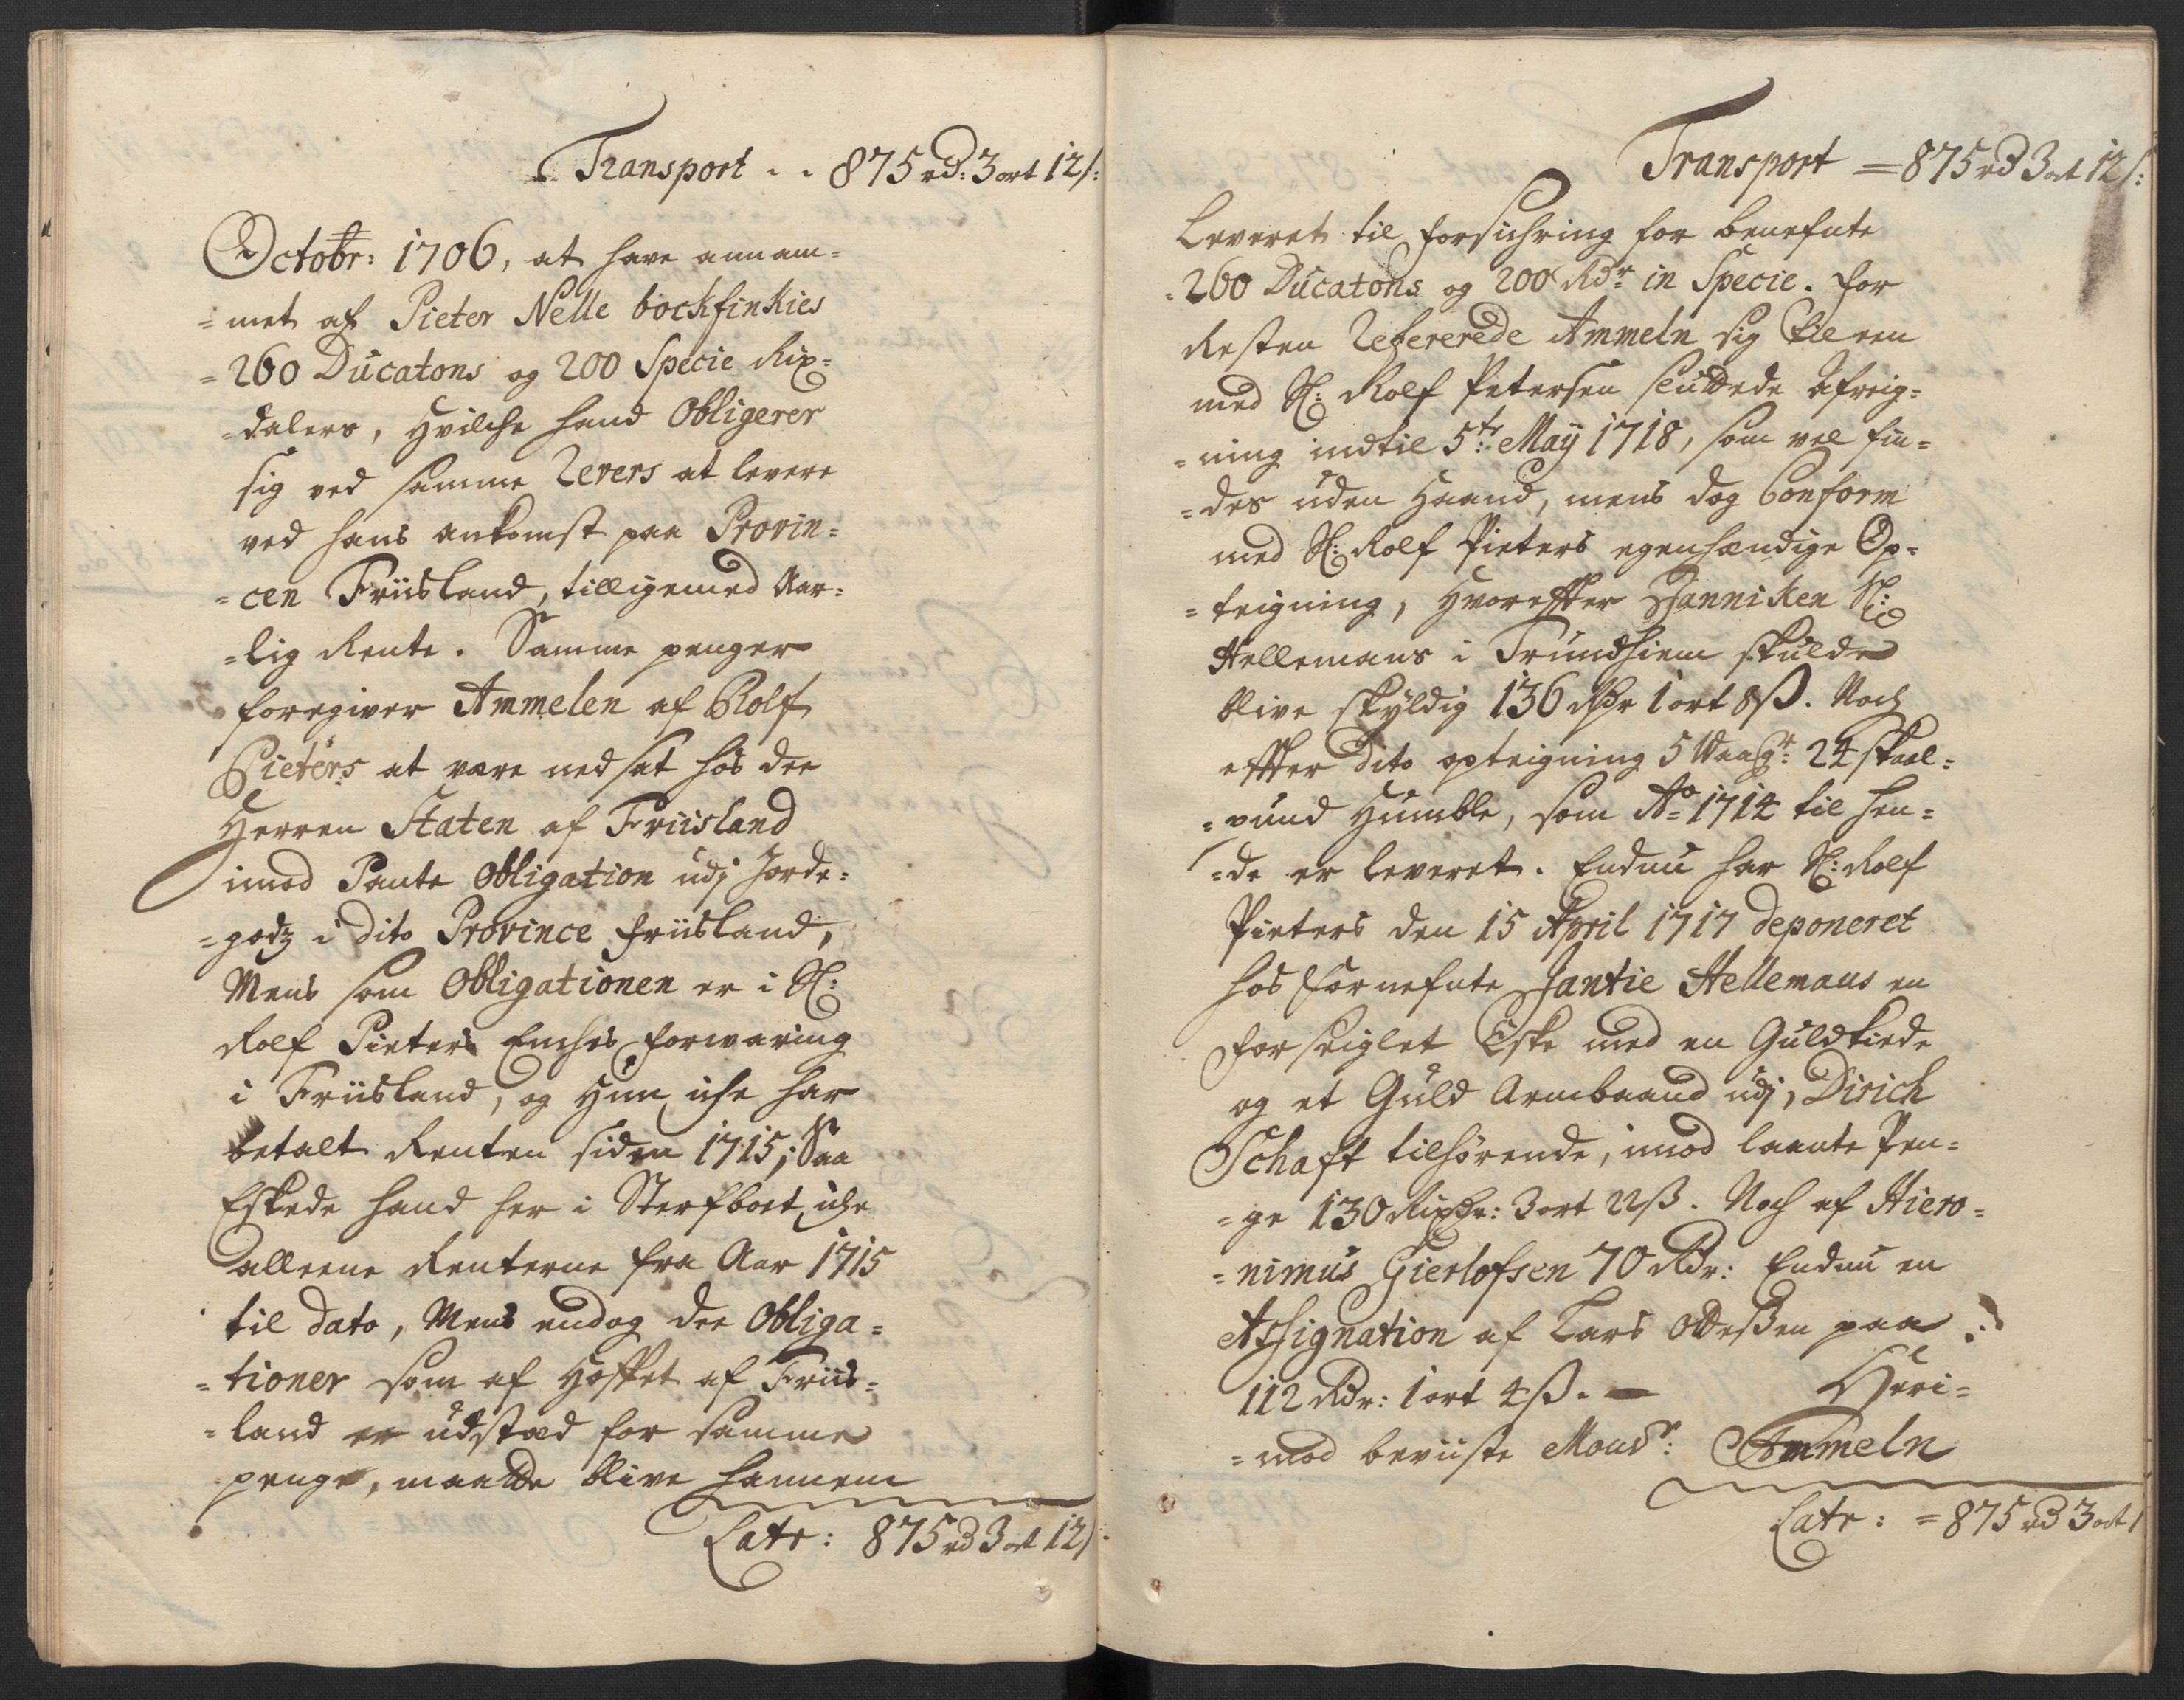 Transport . . 875 rd: 3 ort 12 s:
Octobr: 1706, at have annam=
=met af Pieter Nelle bockfinkies
=260 Ducatons og 200 Specie Rix=
=dalers, hvilche hand Obligerer
sig ved samme Revers at levere
ved hans ankomst paa Provin=
=cen Friisland, tilligemed Aar=
=lig Rente. Samme penger
foregiver Ammelen af Rolf
Pieters at være nedsat hos de
Herren Staten af Friisland
imod Pante Obligation udj Jorde=
=godz i dito Province Friisland,
Mens som Obligationen er i Sl:
Rolf Pieters Enches forwaring
i Friisland, og hun iche har
betalt Renten siden 1715; Saa
Eskede hand her i Sterfboet iche
alleene Renterne fra Aar 1715
til dato, Mens endog de Obliga=
=tioner som af Hoffet af Friis=
=land er udstæd for samme
penge, maatte blive hannem
Latr: 875 rd 3 ort 12 s
Transport = 875 rd 3 ort 12 s:
Leveret til forsichring for benefnte
=260 Ducatons og 200 Rdr in Specie. for
Resten Refererede Ammeln sig til een
med Sl: Rolf Petersen sluttede Afreig=
=ning indtil 5te May 1718, som vel fin=
=des uden Haand, mens dog Conform
med Sl: Rolf Pieters egenhændige Op=
=teigning, hvorefter Janniken Sl:
Hellemans i Trundhiem skulde
blive skyldig 136 Rdr 1 ort 8 ß. Noch
efter dito opteigning 5 Waagr: 24 skaal=
=pund Humble, som Ao= 1714 til hen=
=de er leveret. Endnu har Sl: Rolf
Pieters den 15 April 1717 deponeret
hos fornefnte Jantie Hellemans en
forseiglet Eske med en Guldkiede
og et Guld Armbaand udj, Dirich
Schaft tilhørende, imod laante Pen=
=ge 130 Rixdr: 3 ort 22 ß. Noch af Hiero=
=nimus Gierlofsen 70 Rdr: Endnu en
Assignation af Lars Olleßen paa
112 Rdr: 1 ort 4 ß. — Heri=
=mod beviiste Monsr: Ammeln
Latr: = 875 rd 3 ort 1